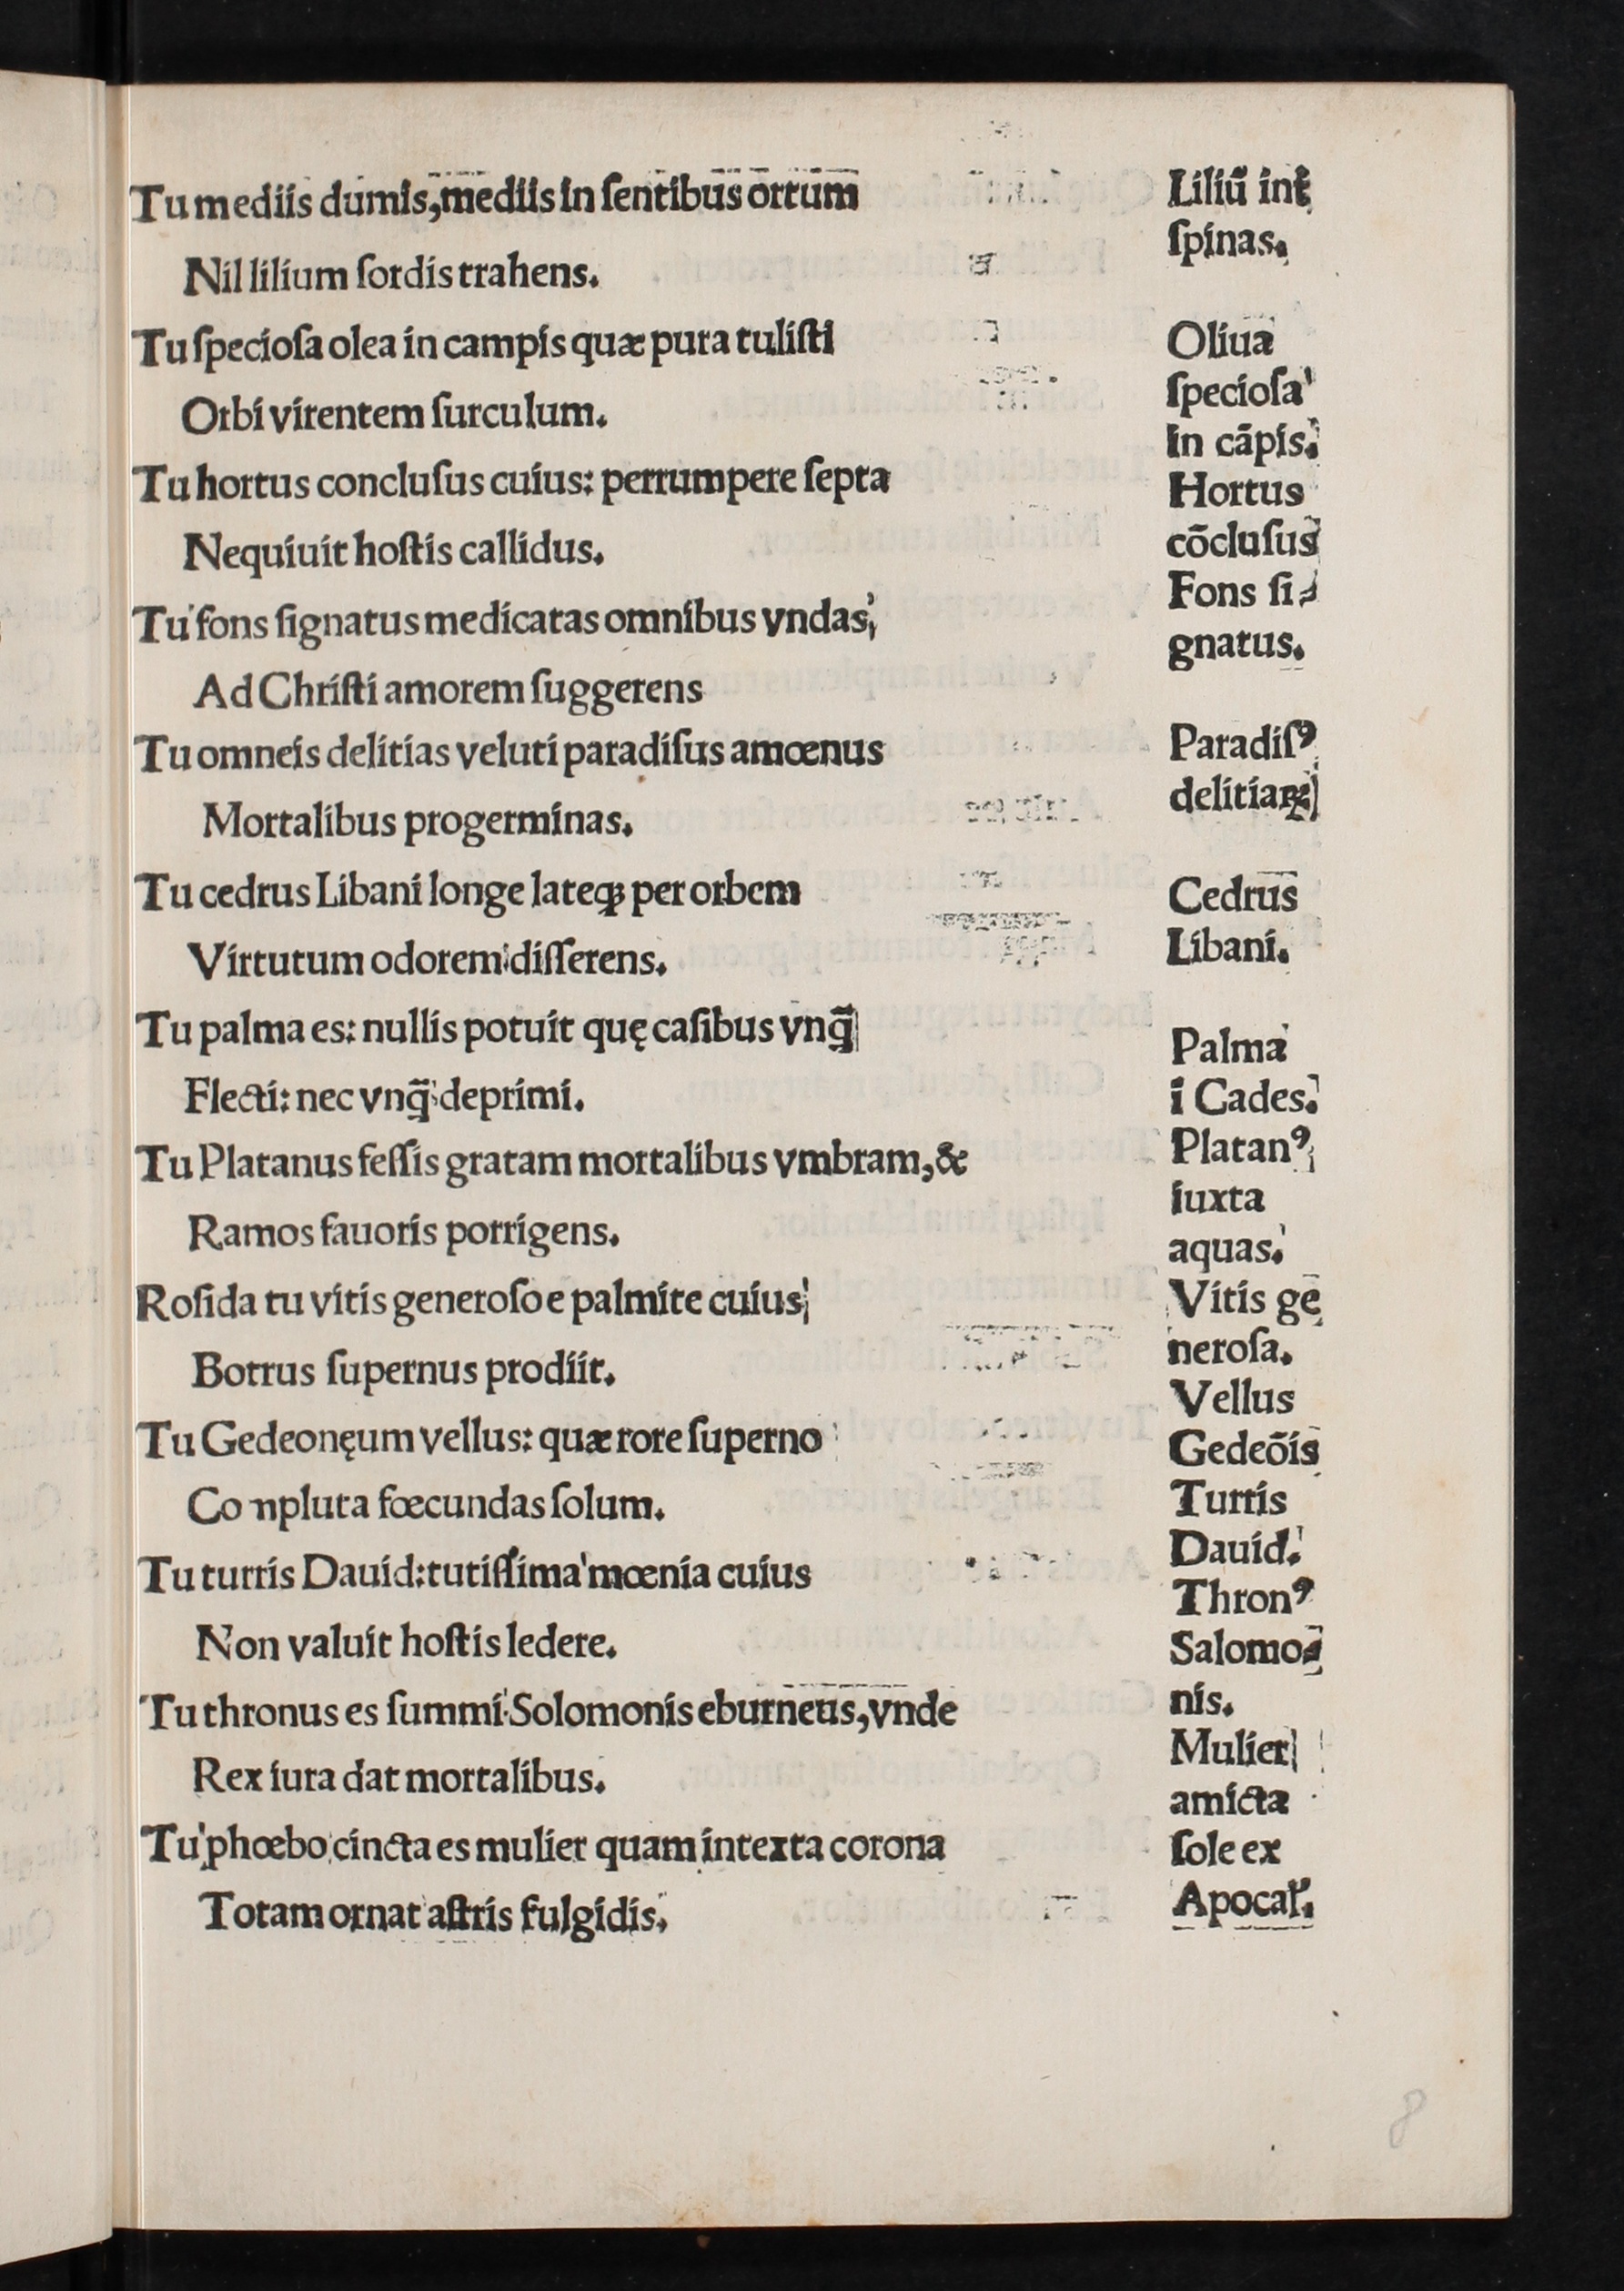 Tu mediis dumis, mediis in ſentibus ortum
Nil lilium ſordis trahens.
Tu ſpecioſa olea in campis quæ pura tuliſti
Orbi virentem ſurculum.
Tu hortus concluſus cuius: perrumpere ſepta
Nequiuit hoſtis callidus.
Tu fons ſignatus medicatas omnibus vndas,
Ad Chriſti amorem ſuggerens
Tu omneis delitias veluti paradiſus amœnus
Mortalibus progerminas.
Tu cedrus Libani longe lateqꝫ per orbem
Virtutum odorem diſſerens.
Tu palma es: nullis potuit quę caſibus vnq̃
Flecti: nec vnq̃ deprimi.
Tu Platanus feſſis gratam mortalibus vmbram, &
Ramos fauoris porrigens.
Roſida tu vitis generoſo e palmite cuius
Botrus ſupernus prodiit.
Tu Gedeonęum vellus: quæ rore ſuperno
Co npluta fœcundas ſolum.
Tu turris Dauid: tutiſſima mœnia cuius
Non valuit hoſtis ledere.
Tu thronus es ſummi Solomonis eburneus, vnde
Rex iura dat mortalibus.
Tu phœbo cincta es mulier quam intexta corona
Totam ornat aſtris fulgidis.
Liliũ int̃
ſpinas.
Oliua
ſpecioſa
in cãpis.
Hortus
cõcluſus
Fons ſi⸗
gnatus.
Paradiſꝰ
delitiaꝝ
Cedrus
Libani.
Palma
ĩ Cades.
Platanꝰ
iuxta
aquas.
Vitis ge
neroſa.
Vellus
Gedeõis
Turris
Dauid.
Thronꝰ
Salomo⸗
nis.
Mulier
amicta
ſole ex
Apocal̓.
8